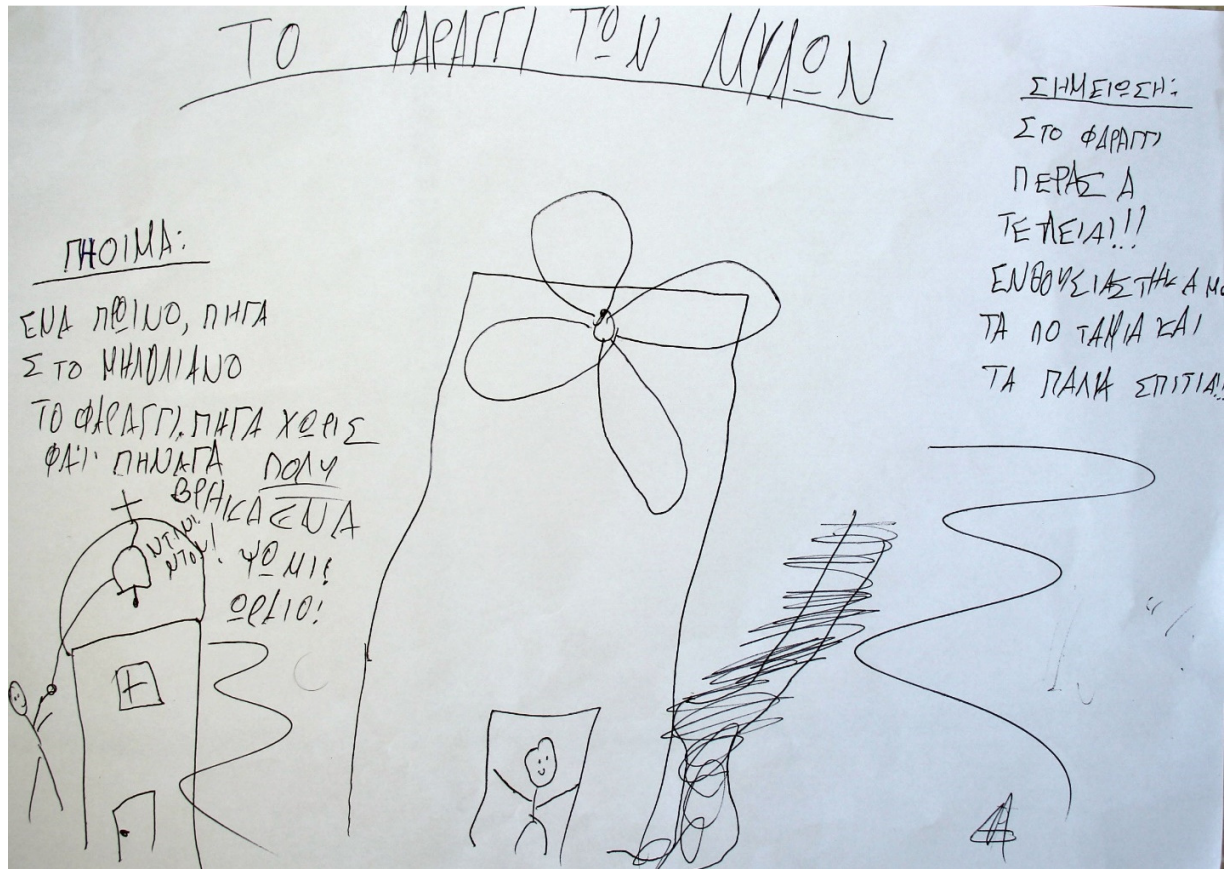 ΤΟ ΦΑΡΑΓΓΙ ΤΩΝ ΜΥΛΩΝ
ΠΗΟΙΜΑ:
ΕΝΑ ΠΡΩΙΝΟ, ΠΗΓΑ
ΣΤΟ ΜΗΛΟΛΙΑΝΟ
ΤΟ ΦΑΡΑΓΓΙ. ΠΗΓΑ ΧΩΡΙΣ
ΦΑΪ. ΠΗΝΑΓΑ ΠΟΛΥ
ΒΡΗΚΑ ΕΝΑ
ΨΩΜΙ!
ΩΡΑΙΟ!
ΝΤΙΝ!
ΝΤΟΝ!
ΣΗΜΕΙΩΣΗ:
ΣΤΟ ΦΑΡΑΓΓΙ
ΠΕΡΑΣΑ
ΤΕΛΕΙΑ!!!
ΕΝΘΟΥΣΙΑΣΤΗΚΑ
ΤΑ ΠΟΤΑΜΙΑ ΚΑΙ
ΤΑ ΠΑΛΙΑ ΣΠΙΤΙΑ!!